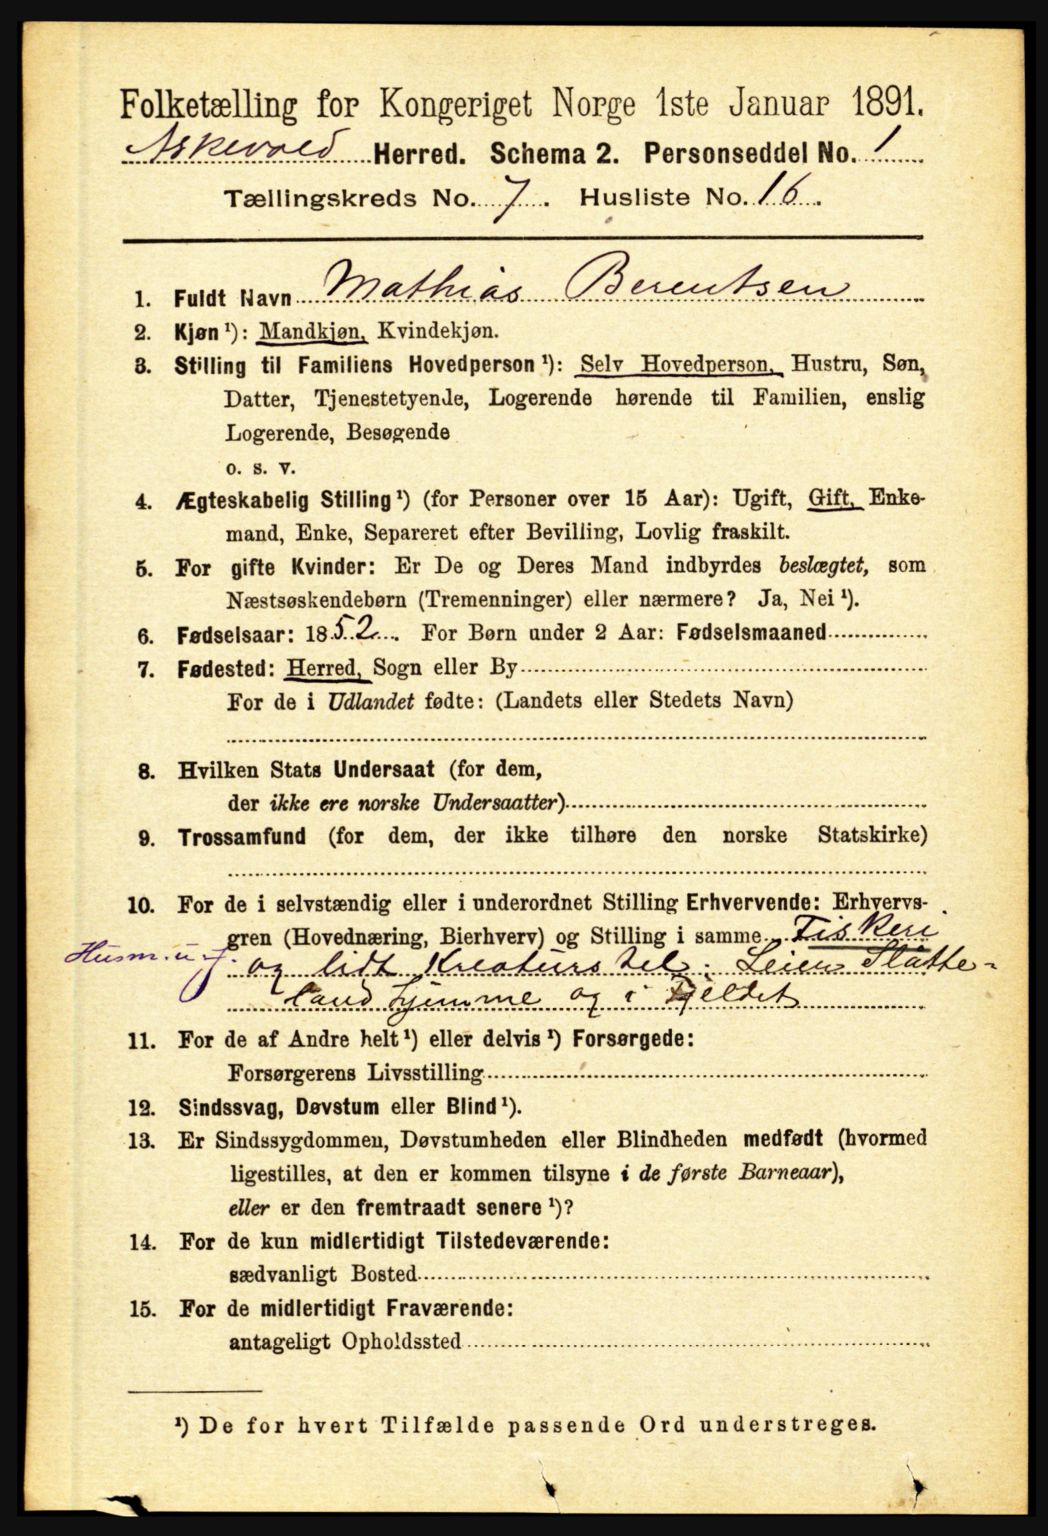 Folketælling for Kongeriget Norge 1ste Januar 1891.
Askevold Herred. Schema 2. Personseddel No. 1
Tællingskreds No. 7. Husliste No. 16.
1. Fuldt Navn Mathias Berentsen
2. Kjøn ¹): Mandkjøn, Kvindekjøn.
3. Stilling til Familiens Hovedperson ¹): Selv Hovedperson, Hustru, Søn,
Datter, Tjenestetyende, Logerende hørende til Familien, enslig
Logerende, Besøgende
o. s. v.
4. Ægteskabelig Stilling ¹) (for Personer over 15 Aar): Ugift, Gift, Enke-
mand, Enke, Separeret efter Bevilling, Lovlig fraskilt.
5. For gifte Kvinder: Er De og Deres Mand indbyrdes beslægtet, som
Næstsøskendebørn (Tremenninger) eller nærmere? Ja, Nei ¹).
6. Fødselsaar: 1852. For Børn under 2 Aar: Fødselsmaaned
7. Fødested: Herred, Sogn eller By
For de i Udlandet fødte: (Landets eller Stedets Navn)
8. Hvilken Stats Undersaat (for dem,
der ikke ere norske Undersaatter)
9. Trossamfund (for dem, der ikke tilhøre den norske Statskirke)
10. For de i selvstændig eller i underordnet Stilling Erhvervende: Erhvervs-
gren (Hovednæring, Bierhverv) og Stilling i samme Fiskeri
Husm. u. j. og lidt Kreaturstel. Leier Slåtte-
land hjemme og i Fjeldet
11. For de af Andre helt ¹) eller delvis ¹) Forsørgede:
Forsørgerens Livsstilling
12. Sindssvag, Døvstum eller Blind ¹).
13. Er Sindssygdommen, Døvstumheden eller Blindheden medfødt (hvormed
ligestilles, at den er kommen tilsyne i de første Barneaar),
eller er den fremtraadt senere ¹)?
14. For de kun midlertidigt Tilstedeværende:
sædvanligt Bosted
15. For de midlertidigt Fraværende:
antageligt Opholdssted
¹) De for hvert Tilfælde passende Ord understreges.